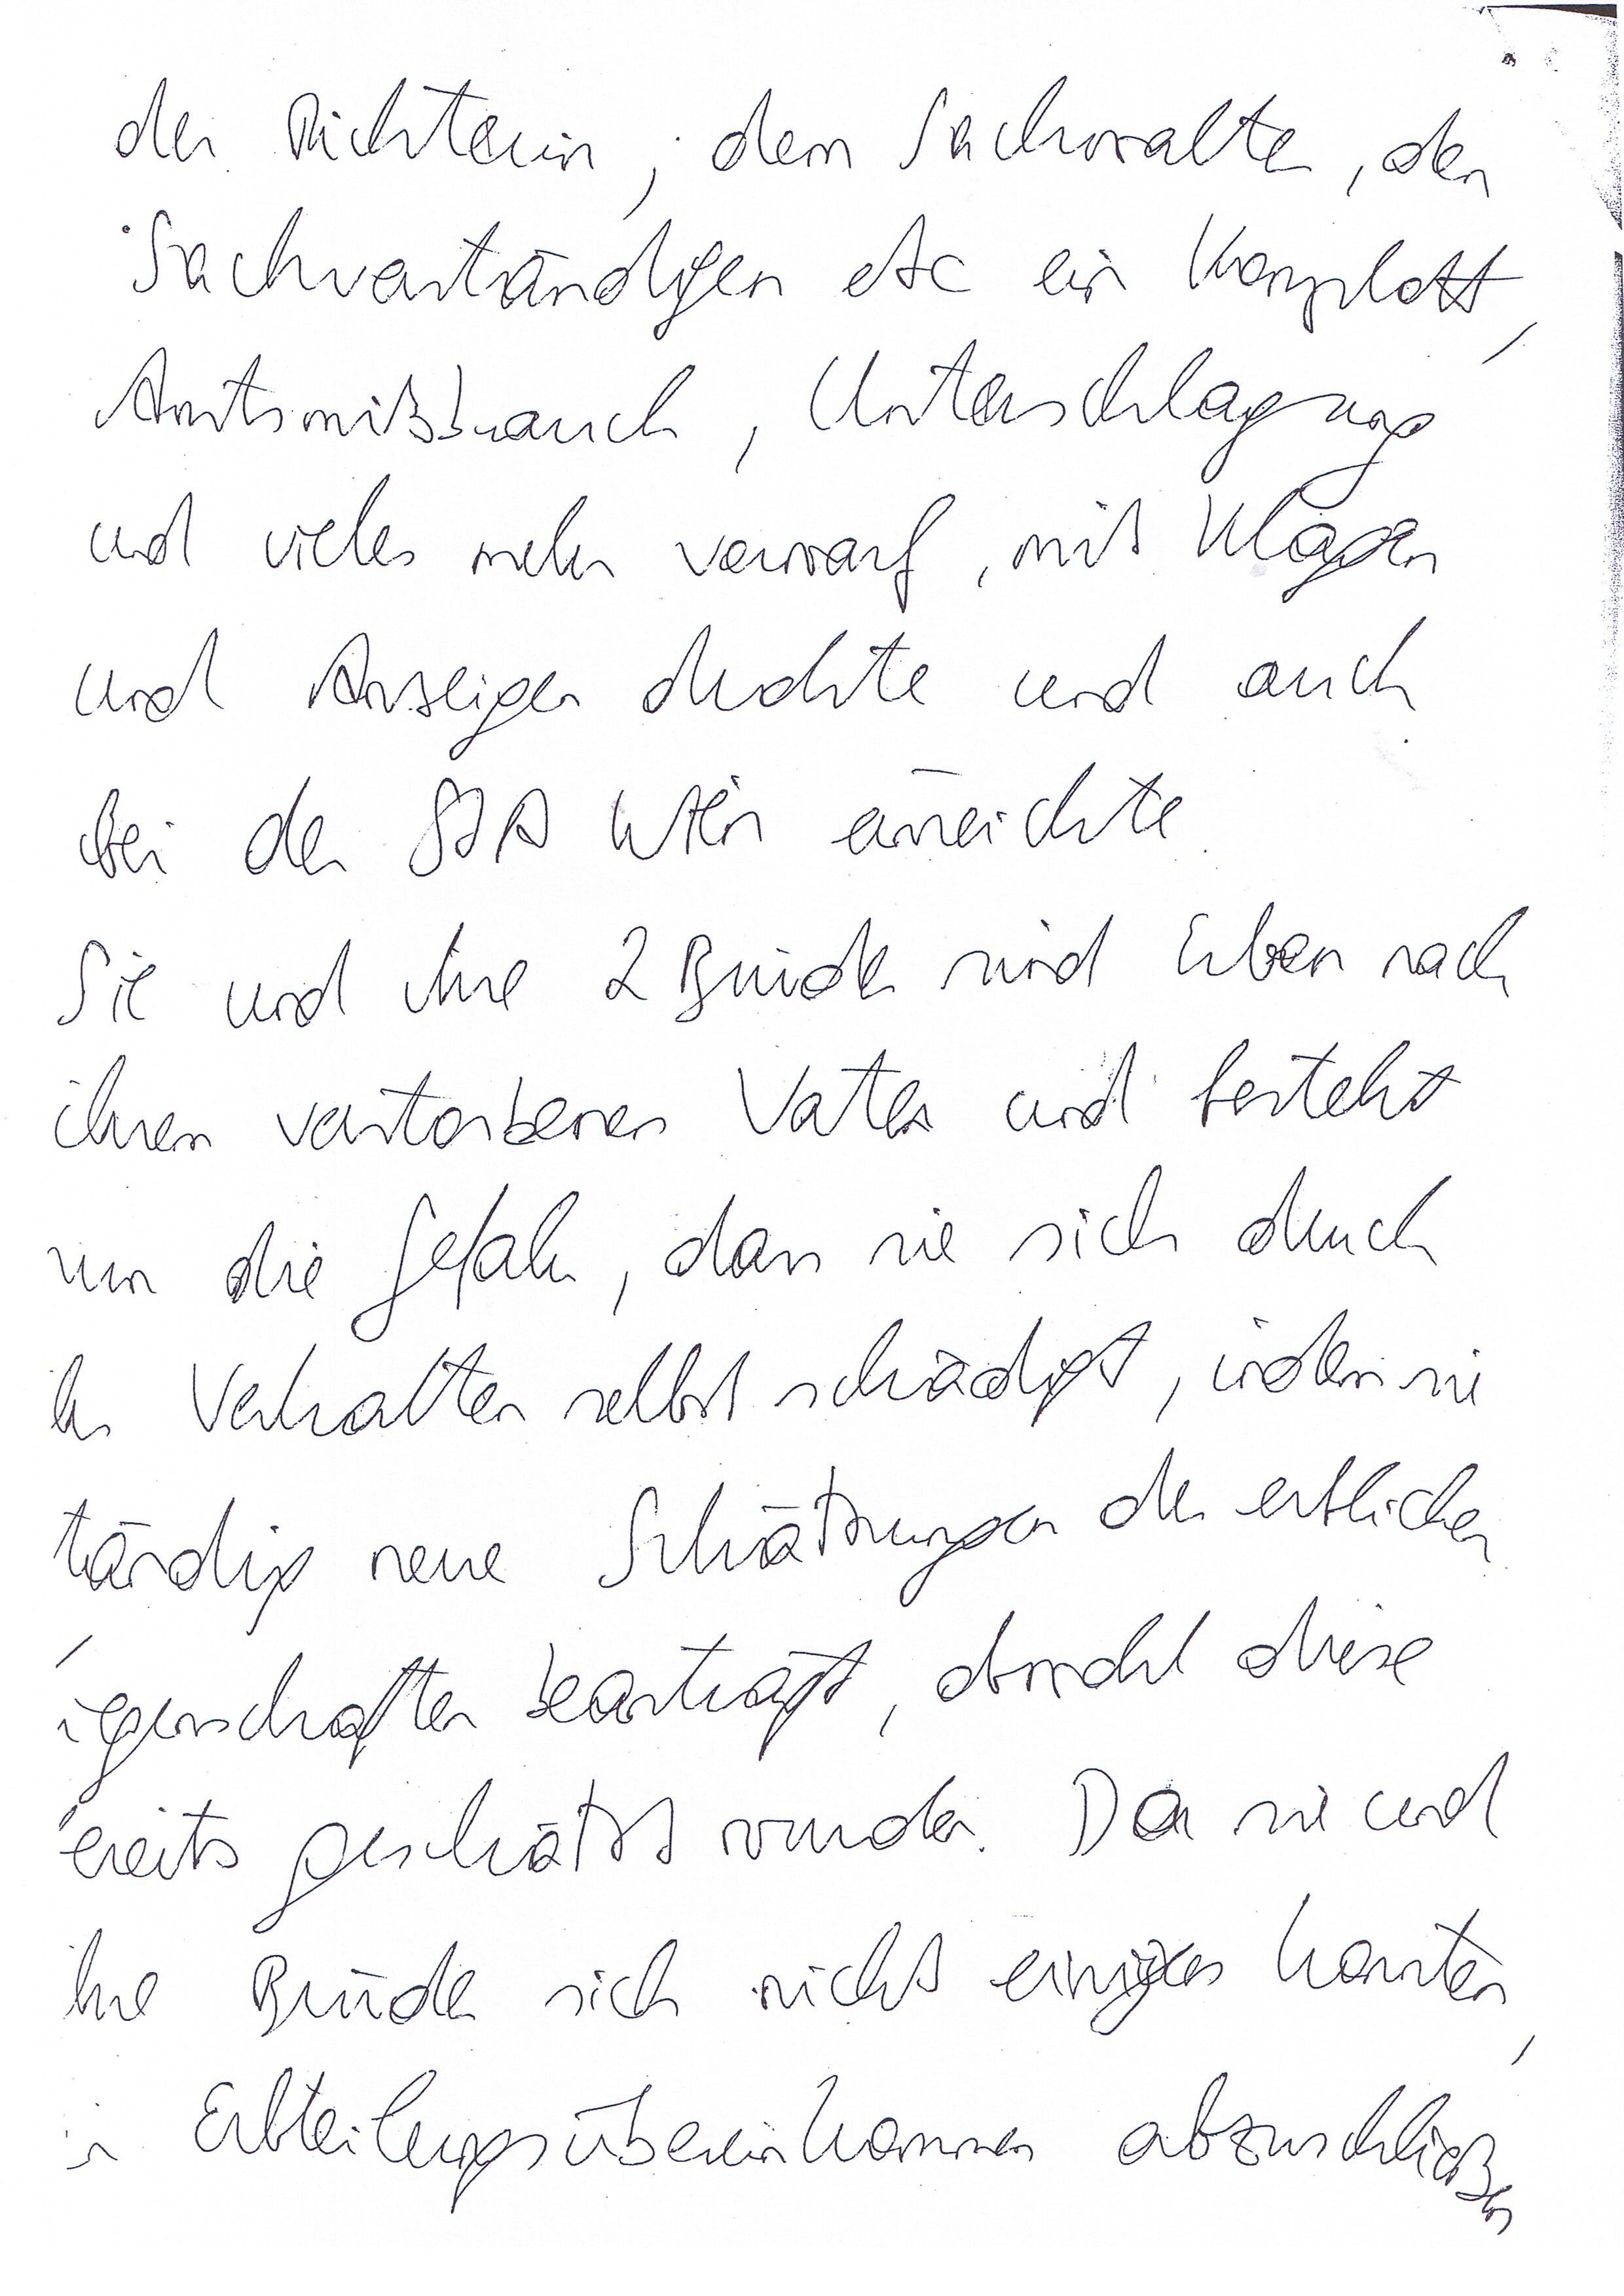 der Richterin, dem Sachwalter, den
Sachverständigen etc ein Komplott,
Amtsmißbrauch, Unterschlagung
und vieles mehr vorwarf, mit Klagen
und Anzeigen drohte und auch
bei der StA Wien einreichte.
Sie und ihre 2 Brüder sind Erben nach
ihrem verstorbenen Vater und besteht
nun die Gefahr, dass sie sich durch
ihr Verhalten selbst schädigt, indem sie
tändig neue Schätzungen der erblichen
igenschaften beantragt, obwohl diese
ereits geschätzt wurden. Da sie und
hre Brüder sich nicht einigen konnten,
n Erbteilungsübereinkommen abzuschließen